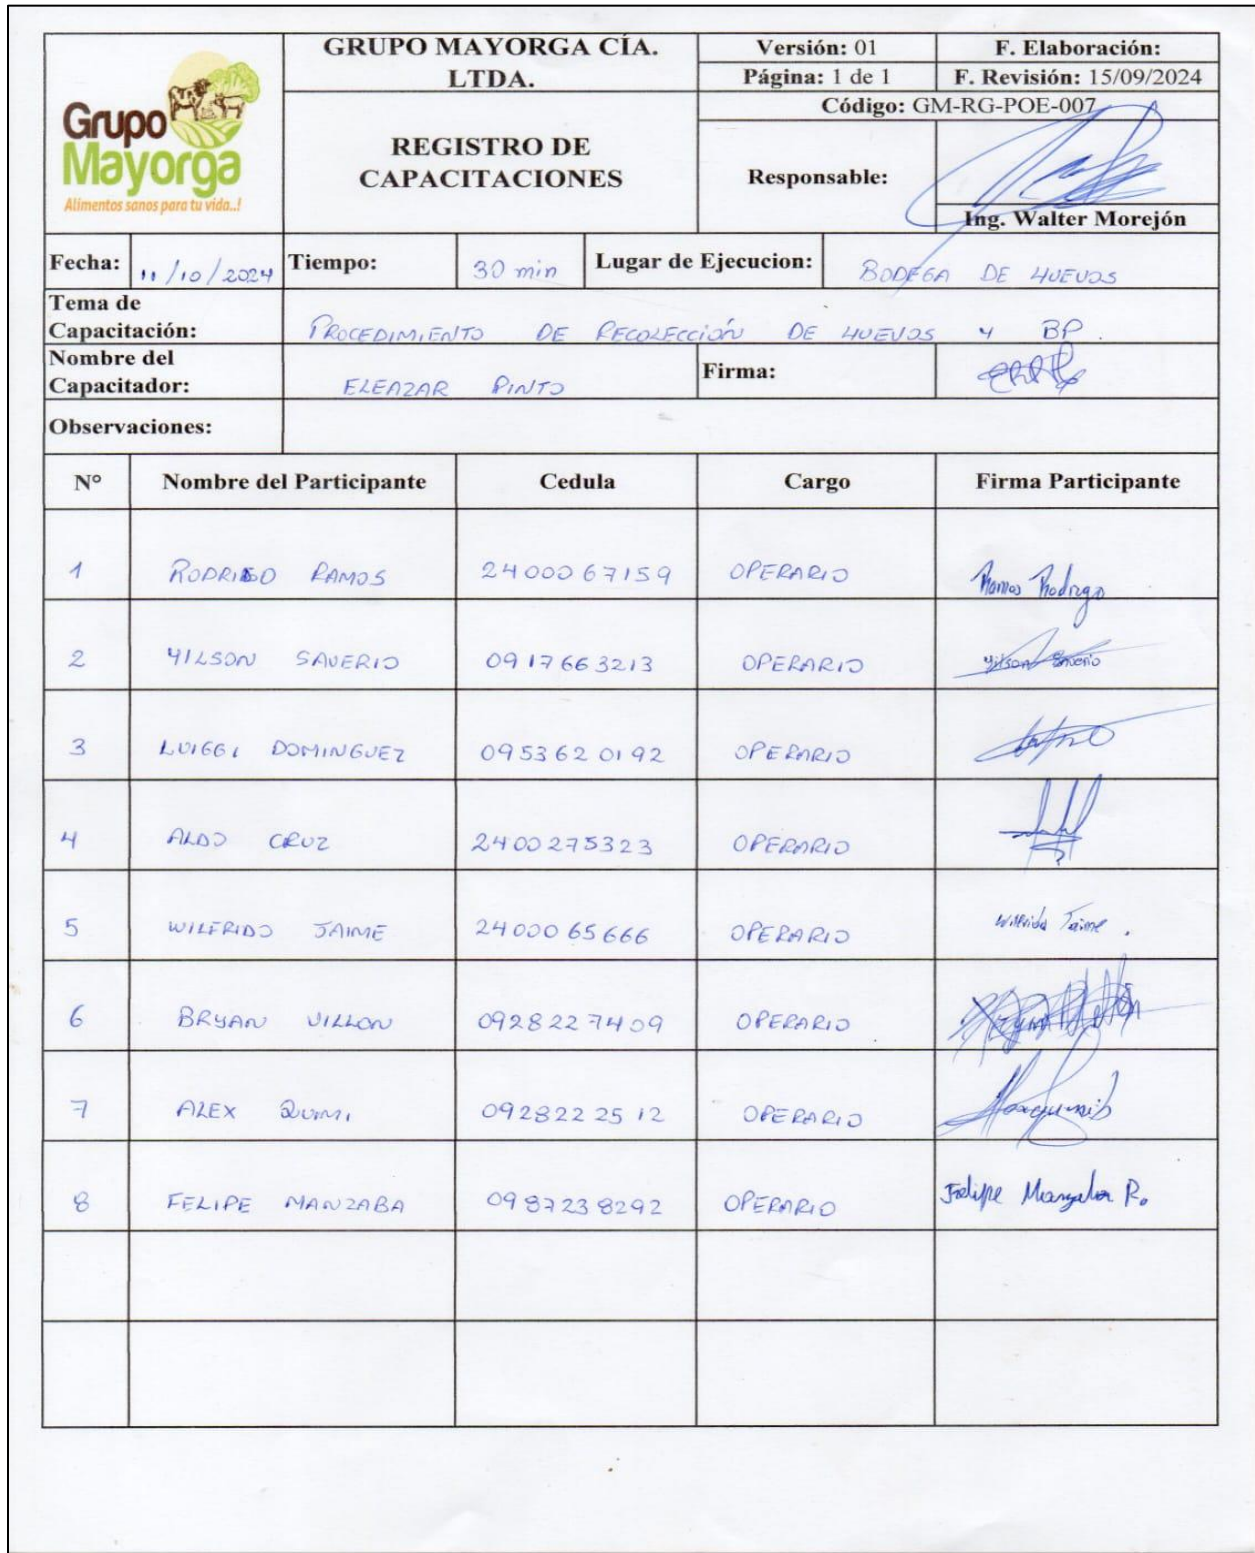 Grupo
Mayorga
Alimentos sanos para tu vida..!
GRUPO MAYORGA CÍA.
LTDA.
Versión: 01
F. Elaboración:
Página: 1 de 1
F. Revisión: 15/09/2024
Código: GM-RG-POE-007
REGISTRO DE
CAPACITACIONES
Responsable:
Ing. Walter Morejón
Fecha: 11/10/2024 Tiempo: 30 min Lugar de Ejecucion: BODEGA DE HUEVOS
Tema de
Capacitación: PROCEDIMIENTO DE RECOLECCIÓN DE HUEVOS Y BP.
Nombre del
Capacitador: ELEAZAR PINTO Firma:
Observaciones:
N° Nombre del Participante Cedula Cargo Firma Participante
1 RODRIGO RAMOS 2400067159 OPERARIO Ramos Rodrigo
2 YILSON SAVERIO 0917663213 OPERARIO Yilson Saverio
3 LUIGGI DOMINGUEZ 0953620192 OPERARIO
4 ALDO CRUZ 2400275323 OPERARIO
5 WILFRIDO JAIME 2400065666 OPERARIO Wilfrido Jaime.
6 BRYAN VILLON 0928227409 OPERARIO
7 ALEX QUIMI 0928222512 OPERARIO
8 FELIPE MANZABA 0987238292 OPERARIO Felipe Manzaba R.